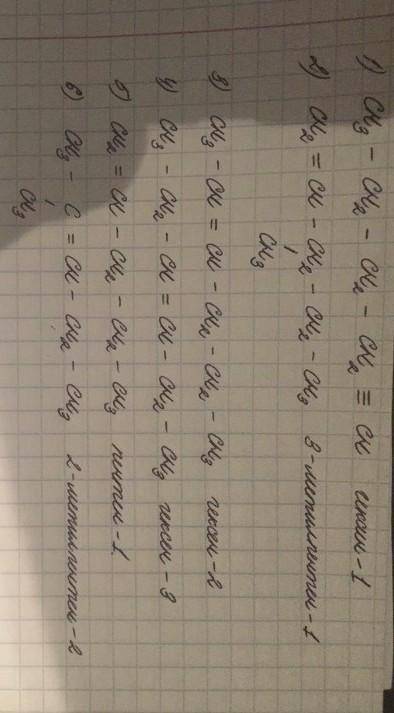 1) CH3 - CH2 - CH2 - CH2 ≡ CH гексен-1
2) CH2 = CH - CH2 - CH2 - CH3 3-метилпентен-1
CH3
3) CH3 - CH = CH - CH2 - CH2 - CH3 гексен-2
4) CH3 - CH2 - CH = CH - CH2 - CH3 гексен-3
5) CH2 = CH - CH2 - CH2 - CH3 пентен-1
6) CH3 - C = CH - CH2 - CH3 2-метилпентен-2
CH3